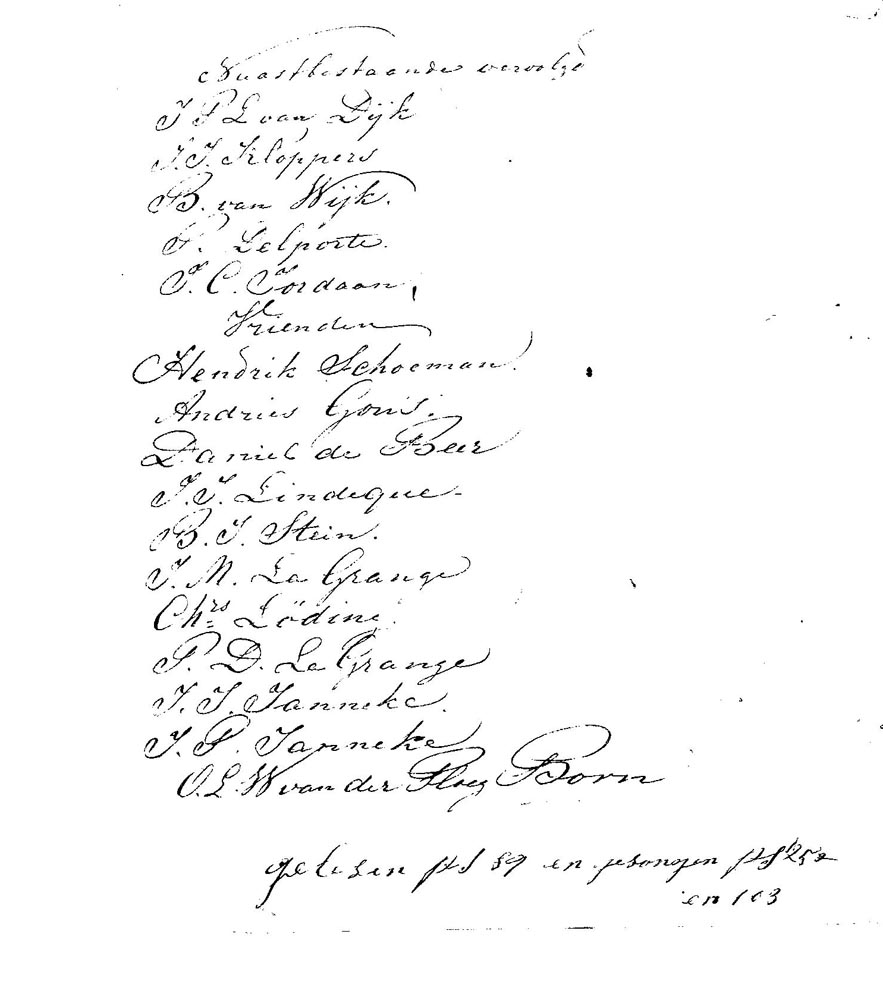 Naastbestaande vervolgd
J P L van Dijk
J. J. Kloppers
B. van Wijk.
P. Delporte.
J. C. Jordaan,
Vrienden
Hendrik Schoeman.
Andries Gous.
Daniel de Beer
J. J. Lindeque
B. J. Stein.
J. M. La Grange
Chrs Lödine
P. D. La Grange
J. J. Janneke.
J. P. Janneke
O. L. W van der Ploeg Born
gelesen ps 89 en gesongen ps
en 103